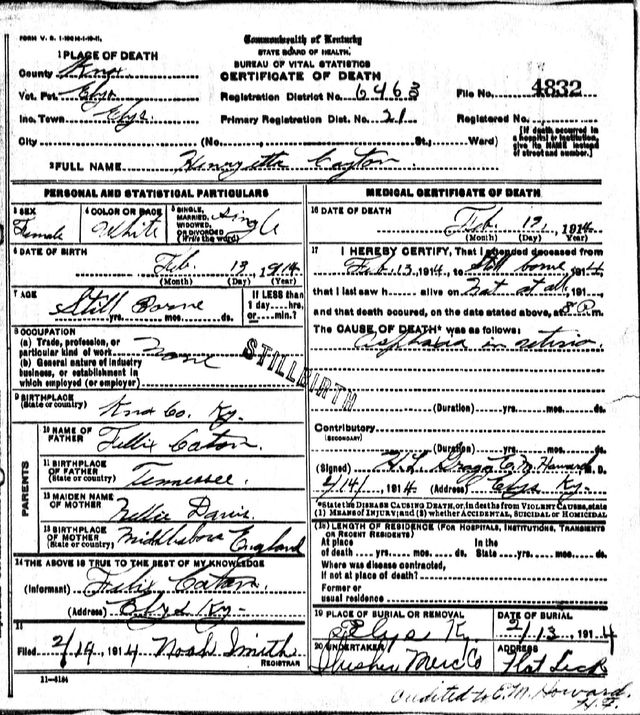 FORM V. S. 1-
Commonwealth of Kentucky
STATE BOARD OF HEALTH.
BUREAU OF VITAL STATISTICS
CERTIFICATE OF DEATH
1 PLACE OF DEATH
County Knox
Vot. Pct. Elys
Inc. Town Elys
City (No. St.; Ward)
Registration District No. 6463
Primary Registration Dist. No. 21
File No. 4832
Registered No.
[If death occurred in a hospital or institution, give its NAME instead of street and number.]
2 FULL NAME Henryetta Cayton.
PERSONAL AND STATISTICAL PARTICULARS
3 SEX Female
4 COLOR OR RACE White
5 SINGLE, MARRIED, WIDOWED, OR DIVORCED (Write the word) Single
6 DATE OF BIRTH Feb. 13, 1914
(Month) (Day) (Year)
7 AGE Still Borne
yrs. mos. ds.
If LESS than 1 day hrs. or min.?
8 OCCUPATION
(a) Trade, profession, or particular kind of work None
(b) General nature of industry business, or establishment in which employed (or employer)
STILLBIRTH
9 BIRTHPLACE (State or country) Knox Co. Ky.
PARENTS
10 NAME OF FATHER Fellix Caton.
11 BIRTHPLACE OF FATHER (State or country) Tennessee.
12 MAIDEN NAME OF MOTHER Nellie Davis
13 BIRTHPLACE OF MOTHER (State or country) England
14 THE ABOVE IS TRUE TO THE BEST OF MY KNOWLEDGE
(Informant) Felix Caton
(Address) Elys Ky.
15
Filed 2/19, 1914 Noah Smith
REGISTRAR
11-6184
MEDICAL CERTIFICATE OF DEATH
16 DATE OF DEATH Feb. 1914
(Month) (Day) (Year)
17 I HEREBY CERTIFY, That I attended deceased from
Feb. 13, 1914, to Still borne, 1914
that I last saw h alive on Not at all, 191
and that death occured, on the date stated above, at 8 P.m.
The CAUSE OF DEATH* was as follows:
in
(Duration) yrs. mos. ds.
Contributory
(SECONDARY)
(Duration) yrs. mos. ds.
(Signed) H.L. Gragg E. M. Howard M. D.
2/14, 1914 (Address) Elys Ky.
*State the DISEASE CAUSING DEATH, or, in deaths from VIOLENT CAUSES, state (1) MEANS OF INJURY; and (2) whether ACCIDENTAL, SUICIDAL or HOMICIDAL.
18 LENGTH OF RESIDENCE (FOR HOSPITALS, INSTITUTIONS, TRANSIENTS OR RECENT RESIDENTS)
At place of death yrs. mos. ds. In the State yrs. mos. ds.
Where was disease contracted, if not at place of death?
Former or usual residence
19 PLACE OF BURIAL OR REMOVAL Elys Ky.
DATE OF BURIAL 2/13, 1914
20 UNDERTAKER Merc Co
ADDRESS Flat Lick
Credited to E. M. Howard.